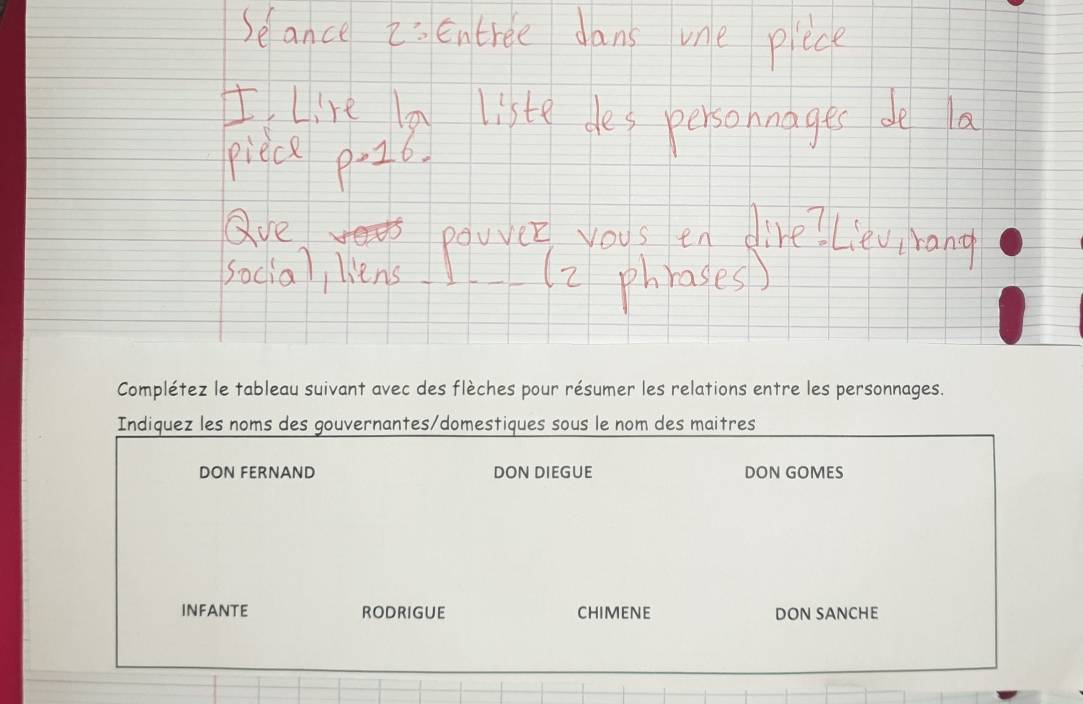 Séance 2: Entrée dans une pièce
I. Lire la liste des personnages de la
pièce p.16.
Que vous pouvez vous en dire? Lieu, rang
social, liens ..... (2 phrases)
Complétez le tableau suivant avec des flèches pour résumer les relations entre les personnages.
Indiquez les noms des gouvernantes/domestiques sous le nom des maitres
DON FERNAND DON DIEGUE DON GOMES
INFANTE RODRIGUE CHIMENE DON SANCHE